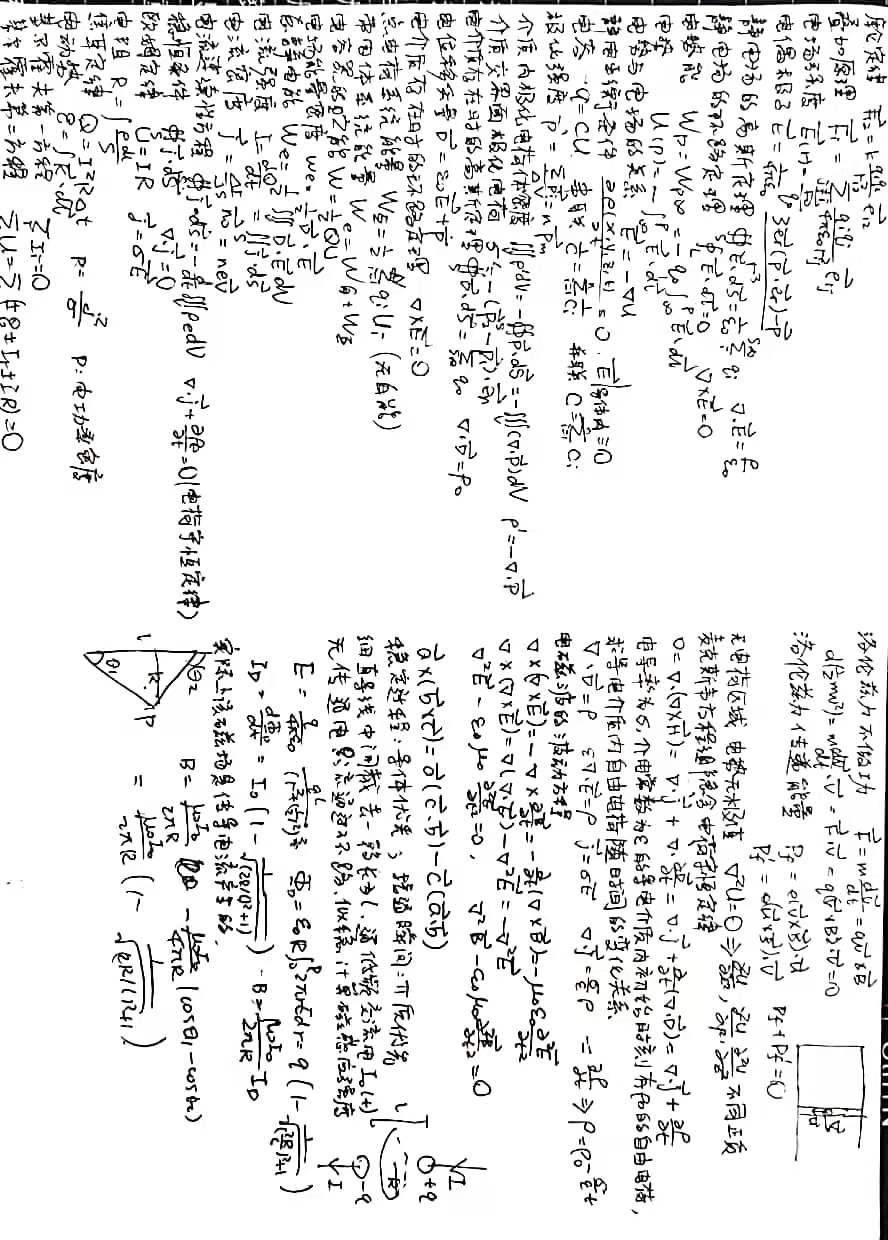 库伦定律 F⃗₁₂ = k q₁q₂/r₁₂² e⃗₁₂
叠加原理 F⃗ᵢ = ∑ qᵢqⱼ/4πε₀r²ᵢⱼ e⃗ᵢⱼ
电场强度 E⃗(r) = F⃗/q₀
电偶极子 E⃗ = 1/4πε₀ 3e⃗r(p⃗·e⃗r)-p⃗/r³
静电场的高斯定理 ∯E⃗·dS⃗ = 1/ε₀ ∑ qᵢ ∇·E⃗ = ρ/ε₀
静电场的环路定理 ∮E⃗·dl⃗ = 0 ∇×E⃗ = 0
电势能 Wp = Wp∞ = -q₀∫E⃗·dl⃗
电势 U(P) = -∫E⃗·dl⃗
电势与电场的关系 E⃗ = -∇U
静电平衡条件 ∂ρ(x,y,z,t)/∂t = 0, E⃗|导体内 ≡ 0
电容 q = CU 串联 1/C = ∑1/Cᵢ 并联 C = ∑Cᵢ
极化强度 P⃗ = ∑p⃗ᵢ/ΔV = np⃗m
介质内极化电荷体密度 ∭ρ'dV = -∯P⃗·dS⃗ = -∭(∇·P⃗)dV ρ' = -∇·P⃗
介质交界面极化电荷 σ' = -(P⃗₂-P⃗₁)·e⃗n
电介质存在时的高斯定理 ∯D⃗·dS⃗ = ∑q₀ ∇·D⃗ = ρ₀
电位移矢量 D⃗ = ε₀E⃗+P⃗
电介质存在时的环路定理 ∇×E⃗ = 0
点电荷系统能量 WE = 1/2 ∑qᵢUᵢ (无自能)
带电体系统能量 We = W自+W互
电容器的贮能 W = 1/2 QU
电场能量密度 we = 1/2 D⃗·E⃗
总静电能 We = 1/2 ∭D⃗·E⃗dV
电流强度 I = dQ/dt = ∬j⃗·dS⃗
电流密度 j⃗ = ΔI/ΔS n⃗₀ = nev⃗
电流连续性方程 ∯j⃗·dS⃗ = -d/dt∭ρedV ∇·j⃗+∂ρe/∂t = 0(电荷守恒定律)
稳恒条件 ∯j⃗·dS⃗ ∇·j⃗ = 0
欧姆定律 U = IR j⃗ = σE⃗
电阻 R = ∫ρdl/S
焦耳定律 Q = I²RΔt P = j²/σ P: 电功率密度
电动势 ε = ∫K⃗·dl⃗
基尔霍夫第一方程 ∑Iᵢ = 0
基尔霍夫第二方程 ∑U = ∑(±ε±Ir±IR) = 0
洛伦兹力不做功 F⃗ = m dv⃗/dt = qv⃗×B⃗
d(½mv²) = m dv⃗/dt·v⃗ = F⃗·v⃗ = q(v⃗×B⃗)·v⃗ = 0
洛伦兹力传递能量 Pf = e(v⃗×B⃗)·u⃗
Pf' = e(u⃗×B⃗)·v⃗ Pf+Pf' = 0
无电荷区域 电势无极值 ∇²U = 0 ⇒ ∂²U/∂x², ∂²U/∂y², ∂²U/∂z² 不同正负
麦克斯韦方程组隐含电荷守恒定律
0 = ∇·(∇×H⃗) = ∇·j⃗ + ∇·∂D⃗/∂t = ∇·j⃗ + ∂/∂t(∇·D⃗) = ∇·j⃗ + ∂ρ/∂t
电导率为σ,介电常数为ε的导电介质内初始时刻有ρ₀的自由电荷,
求导电介质内自由电荷随时间的变化关系.
∇·D⃗ = ρ ε∇·E⃗ = ρ j⃗ = σE⃗ ∇·j⃗ = σ/ε ρ = ∂ρ/∂t ⇒ ρ = ρ₀ -σ/ε t
电磁波的波动方程
∇×(∇×E⃗) = -∇×∂B⃗/∂t = -∂/∂t(∇×B⃗) = -μ₀ε₀ ∂²E⃗/∂t²
∇×(∇×E⃗) = ∇(∇·E⃗)-∇²E⃗ = -∇²E⃗
∇²E⃗ - ε₀μ₀ ∂²E⃗/∂t² = 0, ∇²B⃗ - ε₀μ₀ ∂²B⃗/∂t² = 0
a⃗×(b⃗×c⃗) = a⃗(c⃗·b⃗)-c⃗(a⃗·b⃗)
稳定过程:导体优先;接通瞬间:介质优先
细直导线中间截去一段长为l,通低频交流电I₀(t)
无传导电流通过环路,似稳计算磁感应强度
E = q/4πε₀ ql/(r²+(l/2)²)^3/2 Φ_D = ε₀∫2πrEdr = q(1-1/√((2R/l)²+1))
I_D = dΦ_D/dt = I₀(1-1/√((2R/l)²+1)) B = μ₀I₀/2πR I_D
实际上该磁场是传导电流产生的.
B = μ₀I₀/2πR - μ₀I₀/4πR (cosθ₁-cosθ₂)
= μ₀I₀/2πR (1-1/√(2R/l)²+1)
I
+q
l
R
-q
I
θ₂
l
R
P
θ₁